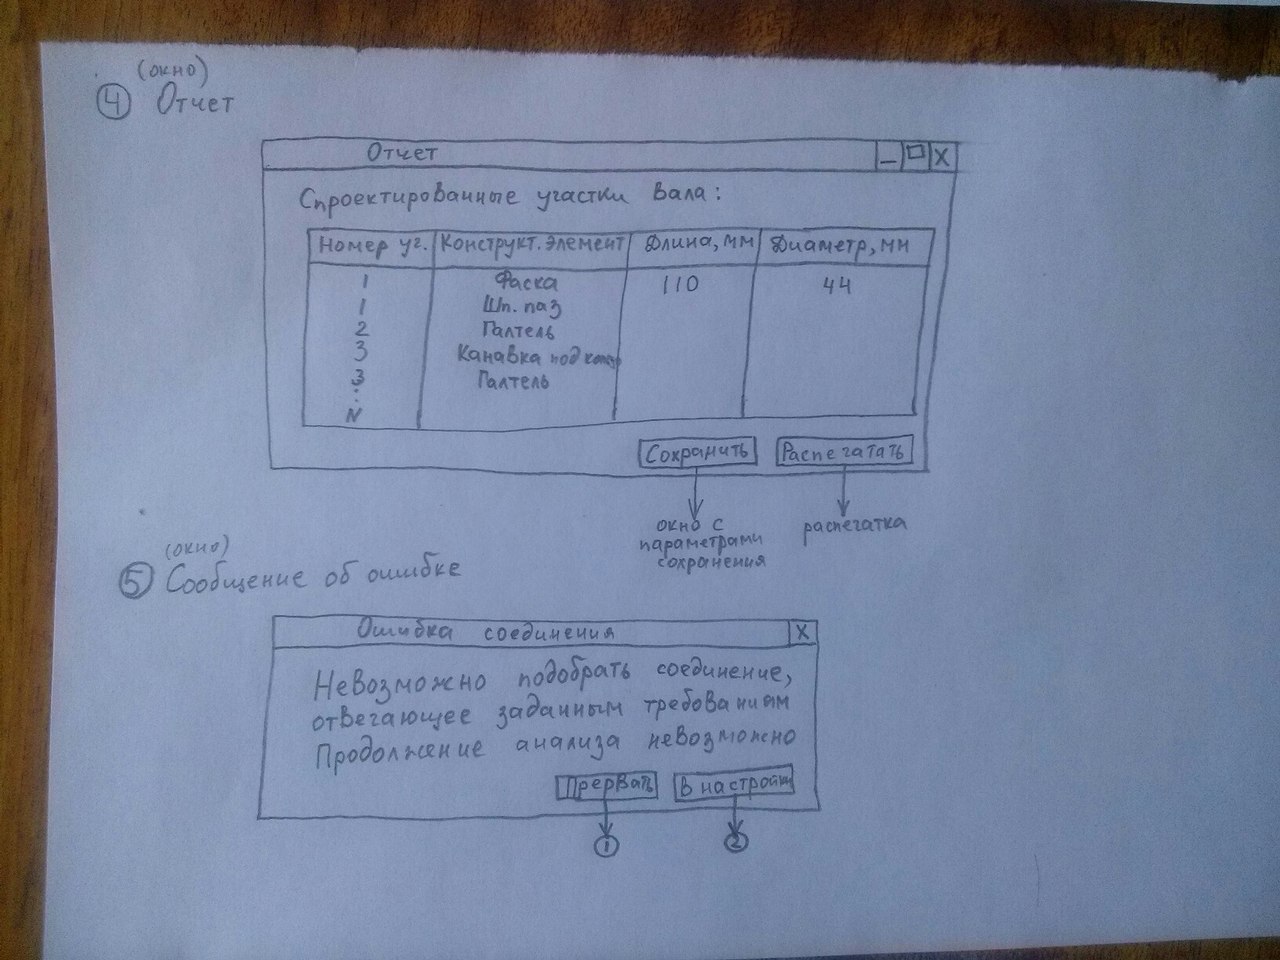 (окно)
4 Отчет
Отчет _ X
Спроектированные участки вала:
Номер уч. Конструкт. элемент Длина, мм Диаметр, мм
1 Фаска 110 44
1 Шп. паз
2 Галтель
3 Канавка под
3 Галтель
:
N
Сохранить Распечатать
окно с распечатка
параметрами
сохранения
(окно)
5 Сообщение об ошибке
Ошибка соединения X
Невозможно подобрать соединение,
отвечающее заданным требованиям
Продолжение анализа невозможно
Прервать В настройки
1 2